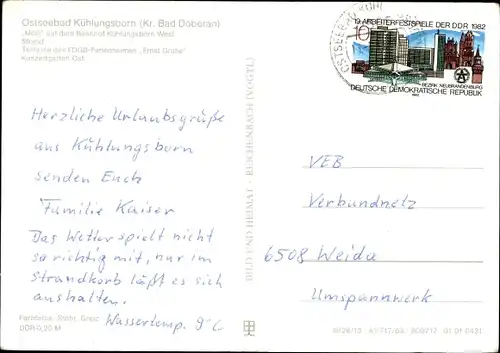 Ostseebad Kühlungsborn (Kr. Bad Doberan)
„Molli" auf dem Bahnhof Kühlungsborn West
Strand
Terrasse des FDGB-Ferienheimes „Ernst Grube"
Konzertgarten Ost
Herzliche Urlaubsgrüße
aus Kühlungsborn
senden Euch
Familie Kaiser
Das Wetter spielt nicht
so richtig mit, nur im
Strandkorb läßt es sich
aushalten.
Wassertemp. 9°C
DDR 0,20 M
BILD UND HEIMAT REICHENBACH (VOGTL)
OSTSEEBAD KÜHL
19. ARBEITERFESTSPIELE DER DDR 1982
10
BEZIRK NEUBRANDENBURG
DEUTSCHE DEMOKRATISCHE REPUBLIK
VEB
Verbundnetz
6508 Weida
Umspannwerk